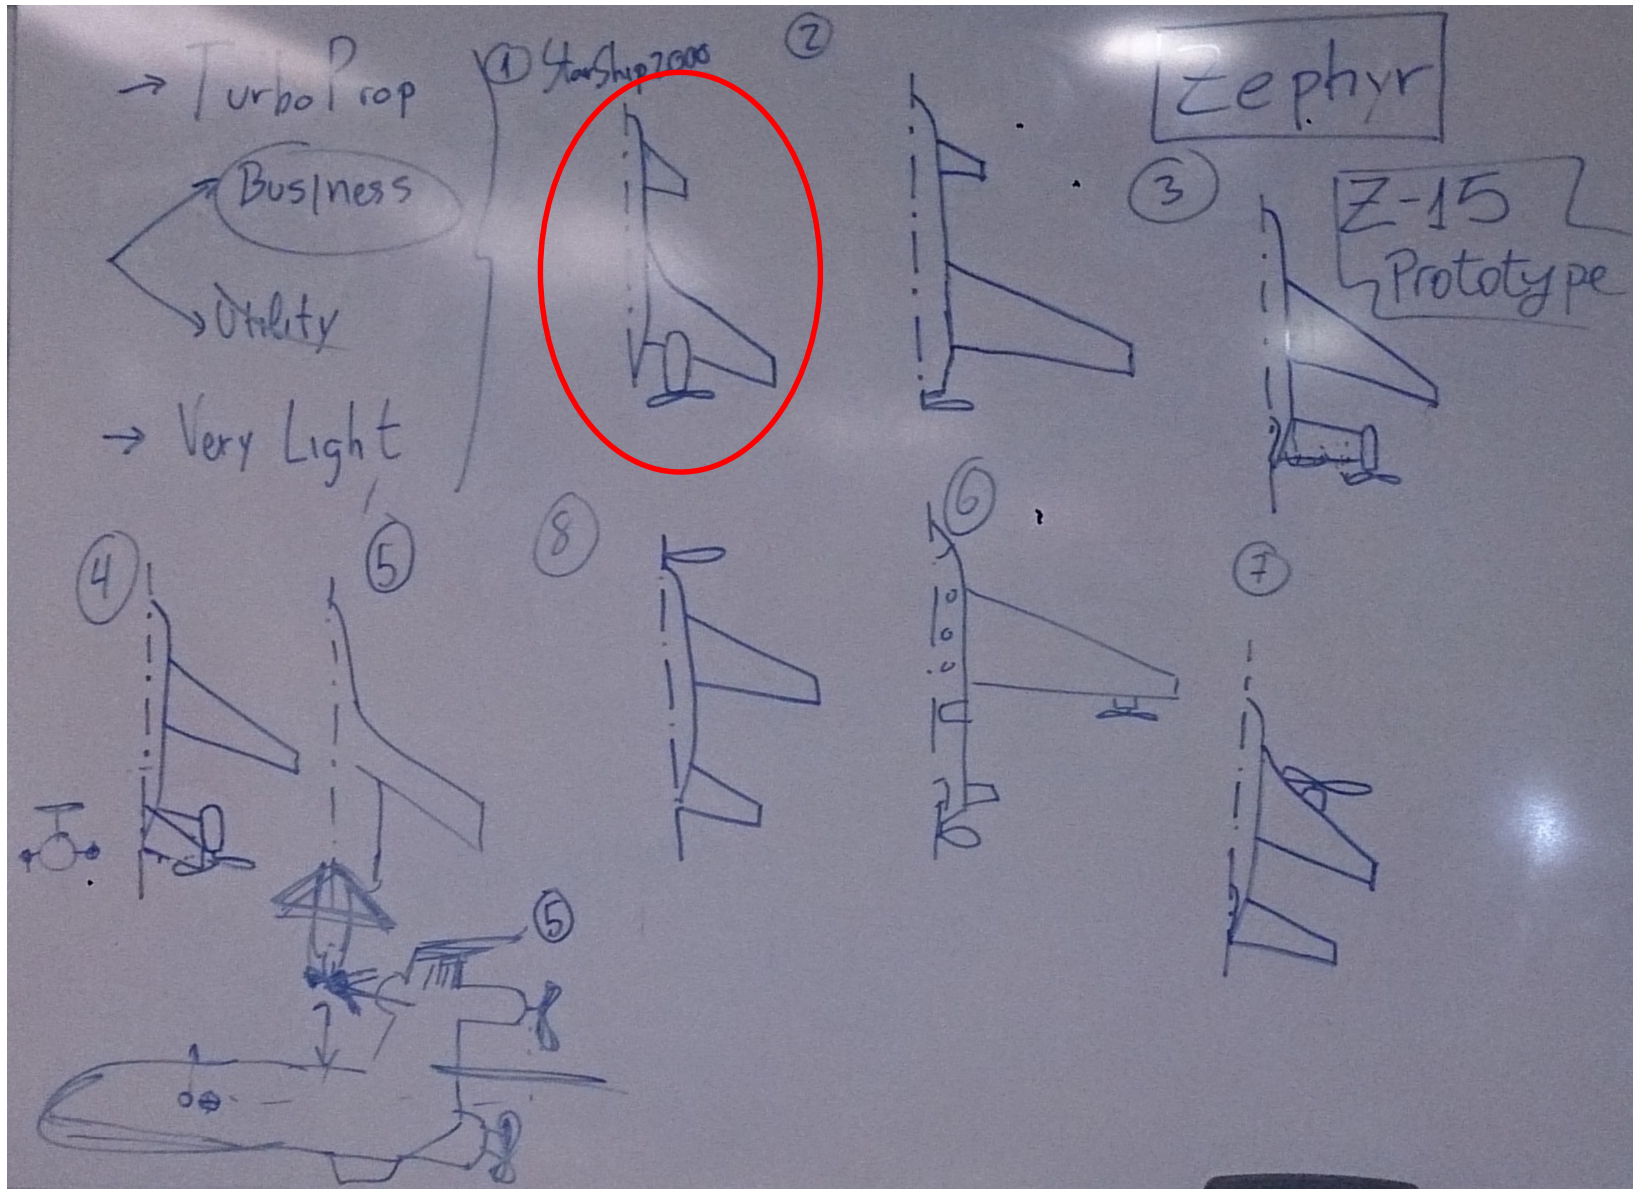 → TurboProp
Business
Utility
→ Very Light
① StarShip2000
②
Zephyr
③
Z-15
Prototype
④
⑤
⑧
⑥
⑦
⑤
?